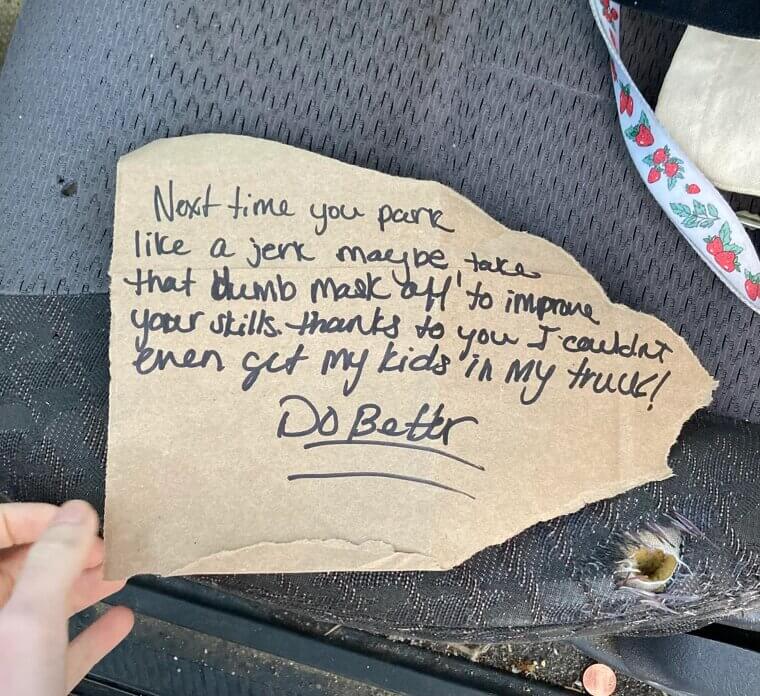 Next time you park
like a jerk maybe take
that dumb mask off to improve
your skills. thanks to you I couldnt
even get my kids in my truck!
Do Better